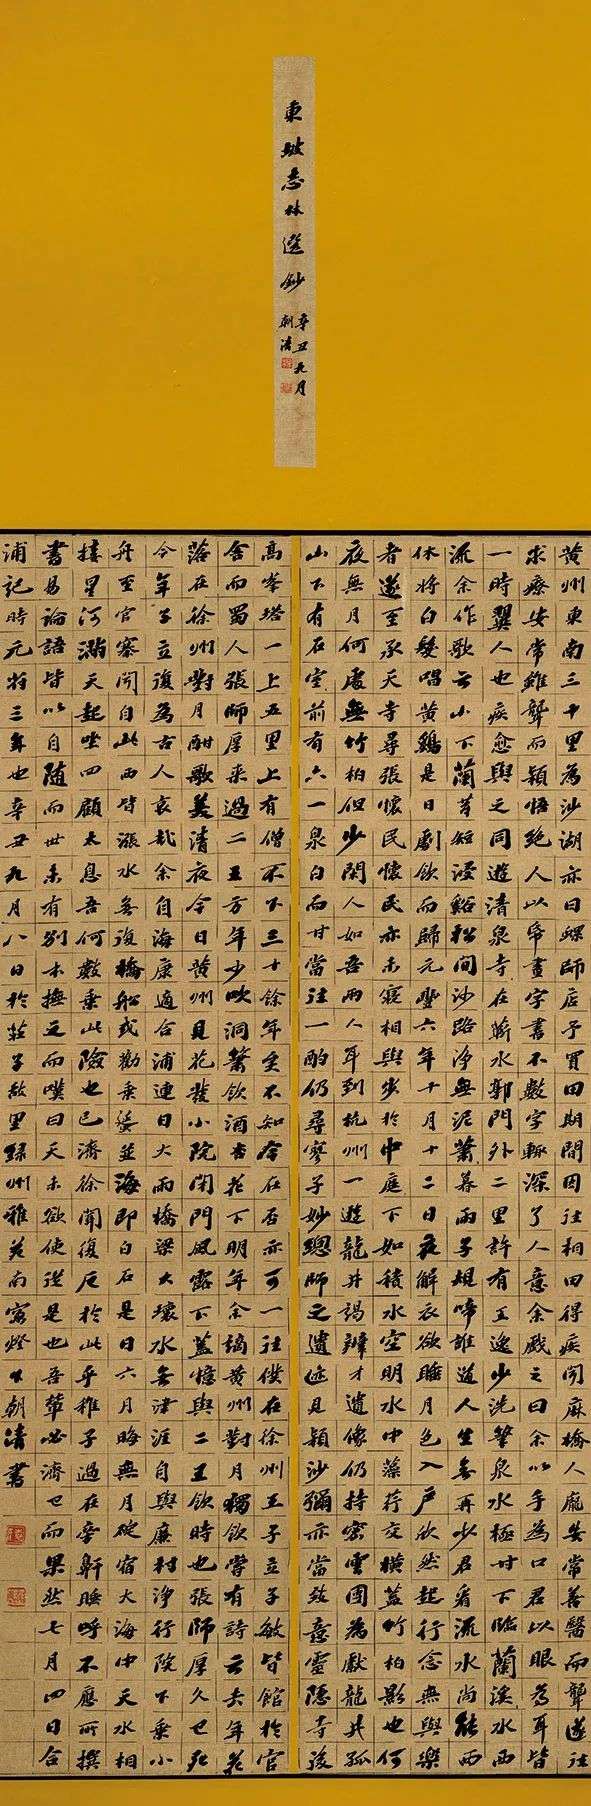 東坡志林選鈔
辛丑九月
朝清
黄州東南三十里為沙湖亦曰螺師店予買田期間因往相田得疾聞麻橋人龐安常善醫而聾遂往
求療安常雖聾而穎悟絶人以帋畫字書不數字輒深了人意余戲之曰余以手為口君以眼為耳皆
一時異人也疾愈與之同遊清泉寺在蘄水郭門外二里許有王逸少洗筆泉水極甘下臨蘭溪水西
流余作歌云山下蘭芽短浸谿松間沙路浄無泥蕭暮雨子規啼誰道人生無再少君看流水尚能西
休將白髮唱黄鷄是日劇飲而歸元豐六年十月十二日夜解衣欲睡月色入户欣然起行念無與樂
者遂至承天寺尋張懷民懷民亦未寢相與步於中庭下如積水空明水中藻荇交横蓋竹柏影也何
夜無月何處無竹柏但少閑人如吾兩人耳到杭州一遊龍井謁辯才遺像仍持密雲團為獻龍井孤
山下有石室前有六一泉白而甘當往一酌仍尋寥子妙總師之遺迹見穎沙彌亦當致意靈隱寺後
高峯塔一上五里上有僧不下三十餘年矣不知今在否亦可一往僕在徐州王子立子敏皆館於官
舍而蜀人張師厚来過二王方年少吹洞簫飲酒杏花下明年余謫黄州對月獨飲嘗有詩云去年花
落在徐州對月酣歌美清夜今日黄州見花發小院閉門風露下蓋憶與二王飲時也張師厚久已死
今年子立復為古人哀哉余自海康適合浦連日大雨橋梁大壞水無津涯自興廉村浄行院下乗小
舟至官寨聞自此西皆漲水無復橋船或勸乗蜑並海即白石是日六月晦無月碇宿大海中天水相
接星河滿天起坐四顧太息吾何數乗此險也已濟徐聞復厄於此乎稚子過在旁鼾睡呼不應所撰
書易論語皆以自隨而世未有别本撫之而嘆曰天未欲使從是也吾輩必濟已而果然七月四日合
浦記時元符三年也辛丑九月八日於莊子故里緑州雅苑南窗燈下朝清書